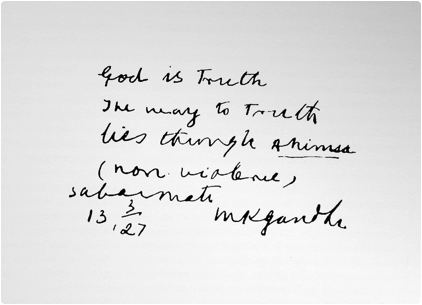 God is Truth
The way to Truth
lies through ahimsa
(non violence)
Sabarmati
13.3.'27 MKGandhi